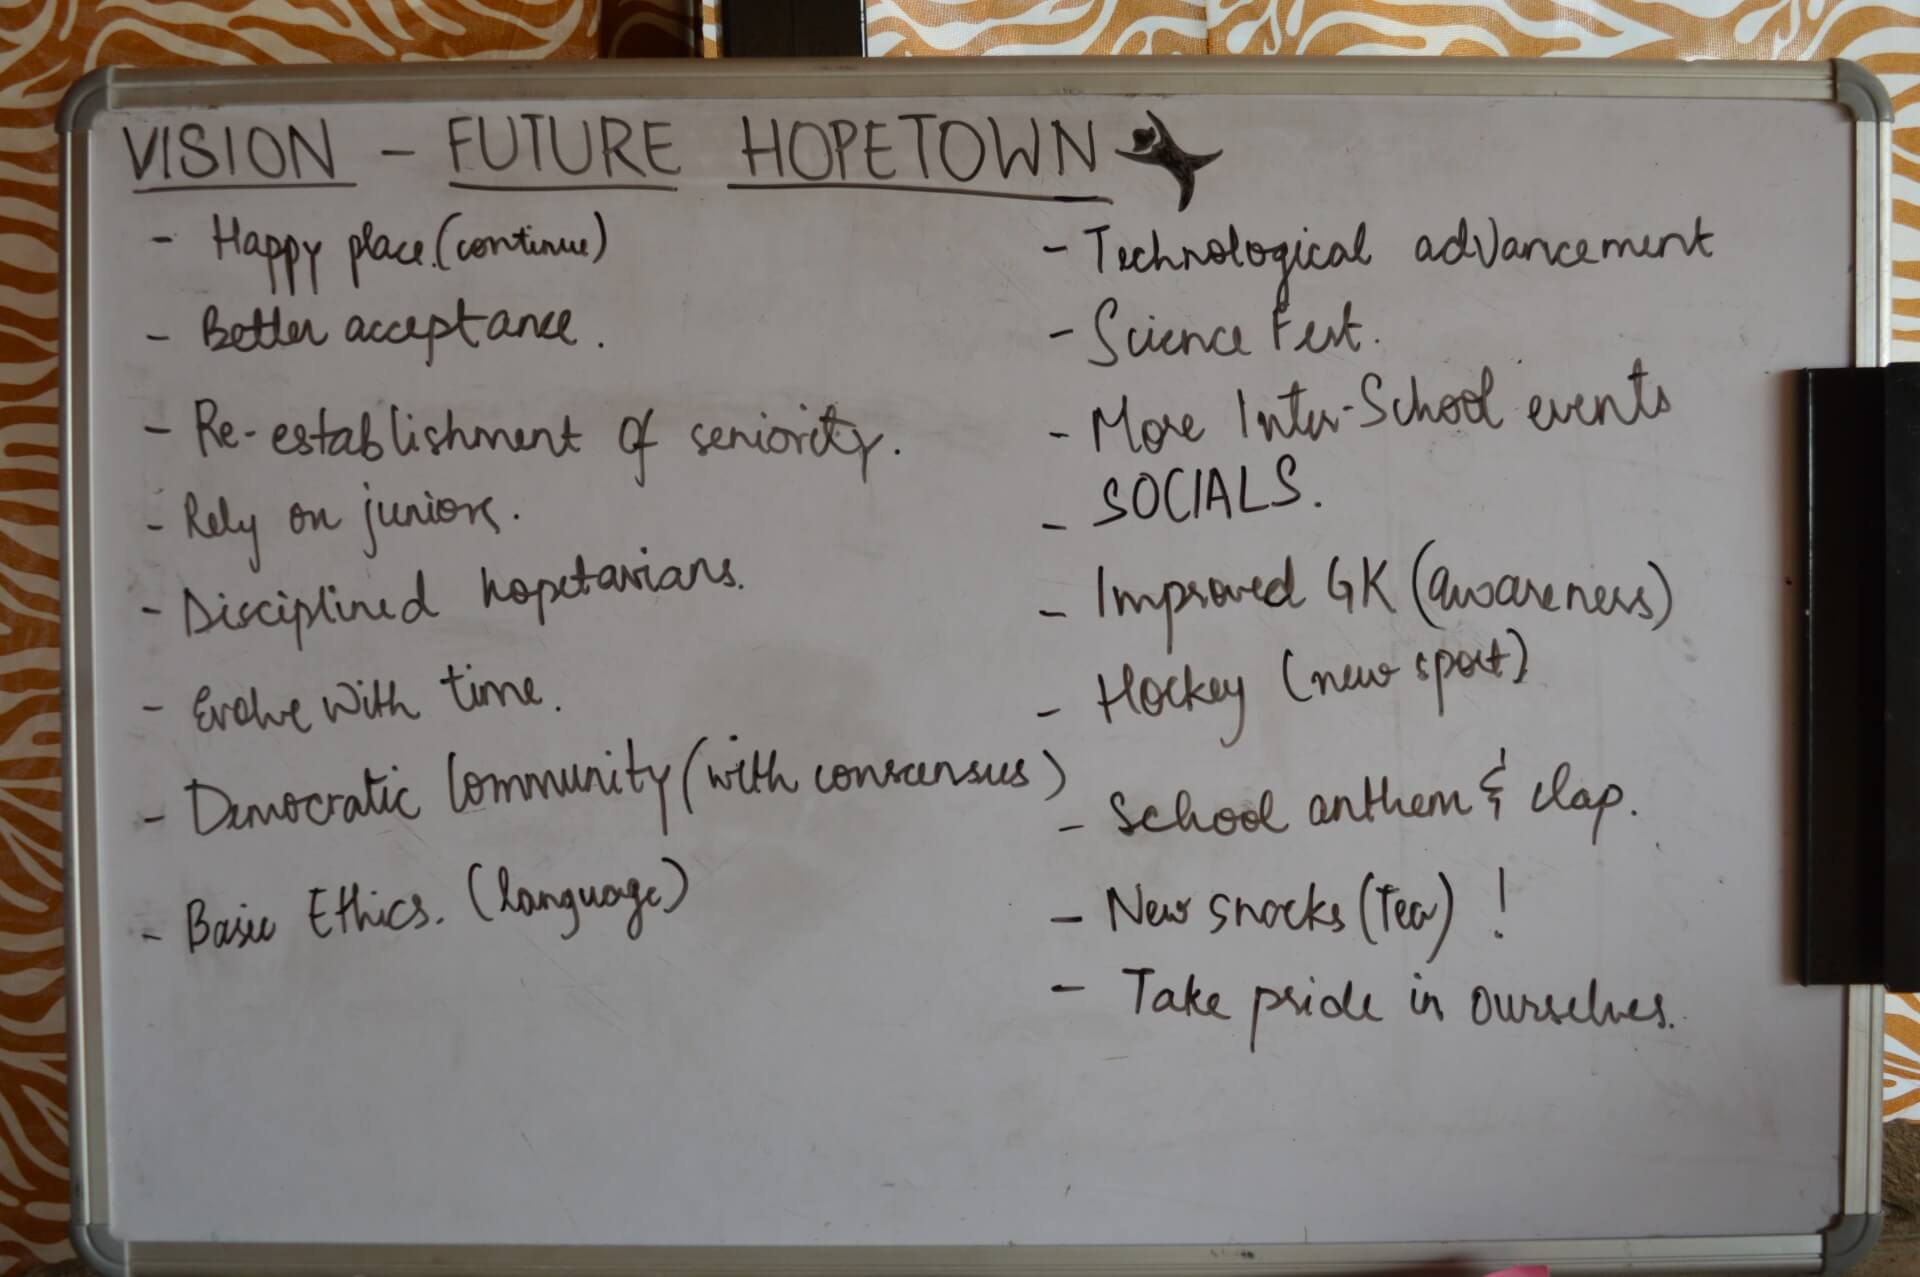 VISION - FUTURE HOPETOWN
- Happy place. (continue)
- Better acceptance.
- Re-establishment of seniority.
- Rely on juniors.
- Disciplined hopetavians.
- Evolve with time.
- Democratic Community (with conscensus)
- Basic Ethics. (language)
- Technological advancement
- Science Fest.
- More Inter-School events
- SOCIALS.
- Improved GK (awareness)
- Hockey (new sport)
- School anthem & clap.
- New snacks (Tea) !
- Take pride in ourselves.